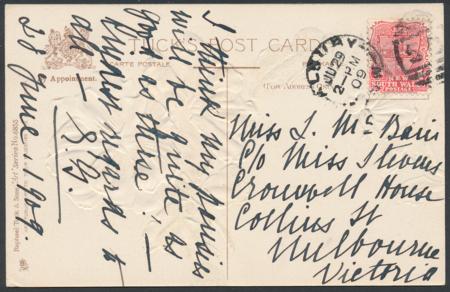 TUCK'S POST CARD
CARTE POSTALE
POSTKARTE
Appointment.
Raphael Tuck & Sons' "Art" Series No. 6853
ALBURY
JU 29
2- PM
09
N.S.W.
SOUTH WALES
POSTAGE
I think my pansies
will be quite as
good as these! —
Kindest regards to
all —
S.G.
28 June, 1909.
Miss L. McBain
C/o Miss Stevens
Cromwell House
Collins St
Melbourne
Victoria